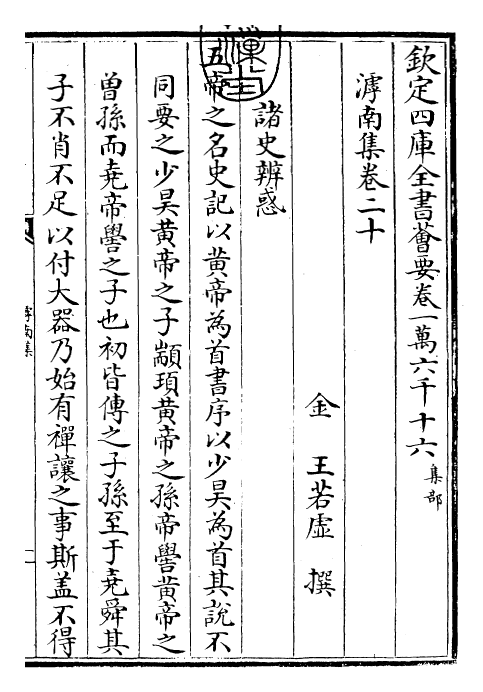 欽定四庫全書薈要卷一萬六千十六 集部
滹南集卷二十
金 王若虛 撰
諸史辨惑
五帝之名史記以黃帝為首書序以少昊為首其說不
同要之少昊黃帝之子顓頊黃帝之孫帝嚳黃帝之
曾孫而堯帝嚳之子也初皆傳之子孫至于堯舜其
子不肖不足以付大器乃始有禪讓之事斯盖不得
滹南集
一